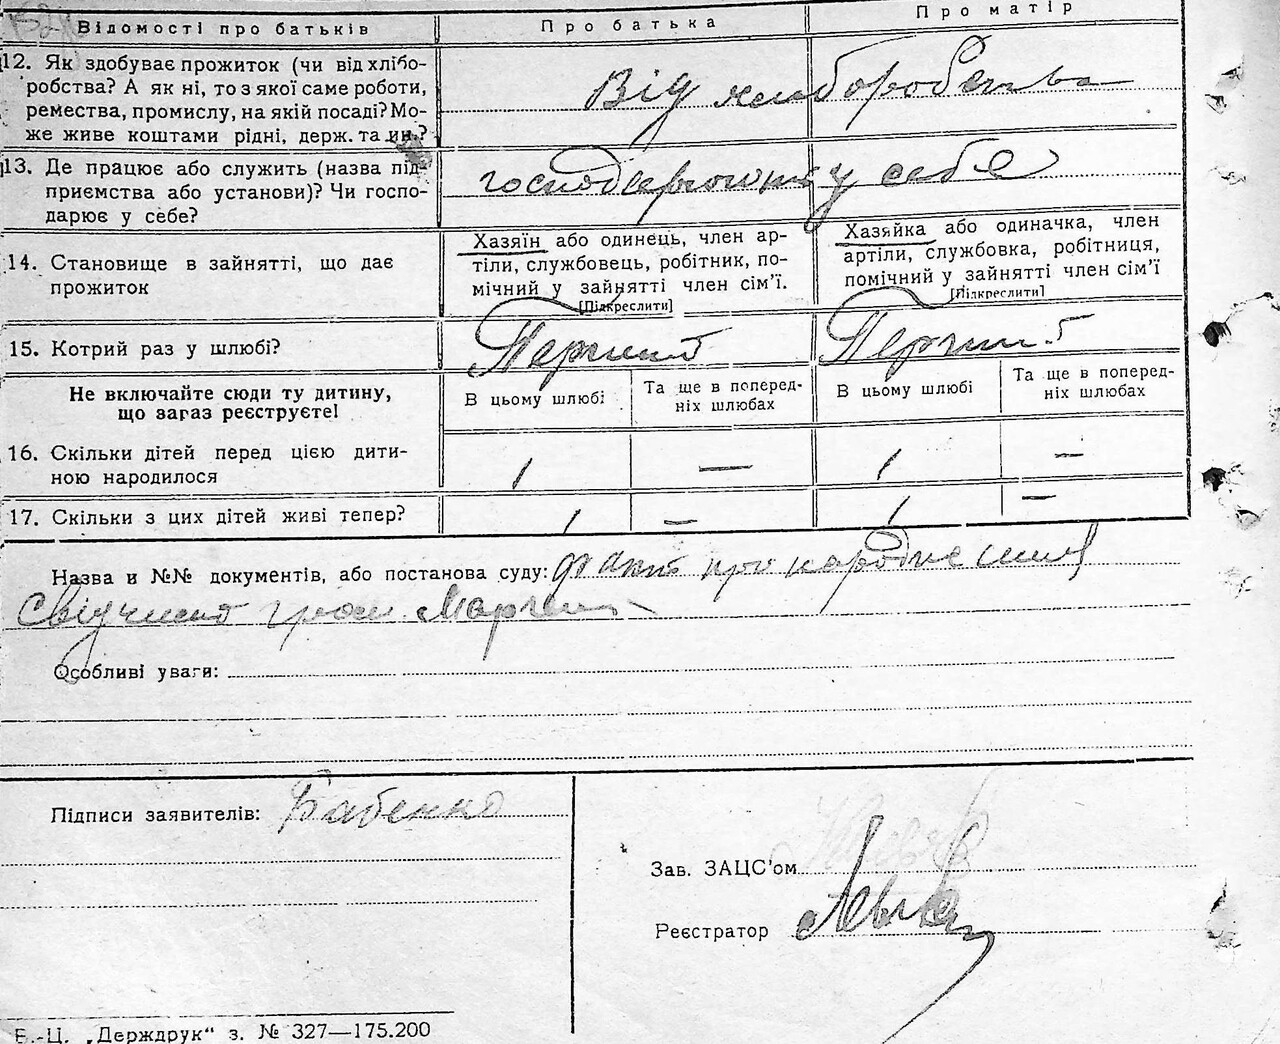 Відомості про батьків
Про батька
Про матір
12. Як здобуває прожиток (чи від хлібо-
робства? А як ні, то з якої саме роботи,
ремества, промислу, на якій посаді? Мо-
же живе коштами рідні, держ. та ин.?
Від хліборобства
13. Де працює або служить (назва під-
приємства або установи)? Чи госпо-
дарює у себе?
господарюють у себе
14. Становище в зайнятті, що дає
прожиток
Хазяїн або одинець, член ар-
тіли, службовець, робітник, по-
мічний у зайнятті член сім'ї.
[Підкреслити]
Хазяйка або одиначка, член
артіли, службовка, робітниця,
помічний у зайнятті член сім'ї
[Підкреслити]
15. Котрий раз у шлюбі?
Перший
Перший
Не включайте сюди ту дитину,
що загаз реєструєте!
В цьому шлюбі
Та ще в поперед-
ніх шлюбах
В цьому шлюбі
Та ще в поперед-
ніх шлюбах
16. Скільки дітей перед цією дити-
ною народилося
1 — 1 —
17. Скільки з цих дітей живі тепер?
1 — 1 —
Назва и №№ документів, або постанова суду: про народження
Свідчить гром.
Особливі уваги:
Підписи заявителів: Бабенко
Зав. ЗАЦС'ом
Реєстратор
Е.-Ц. „Держдрук“ з. № 327—175.200